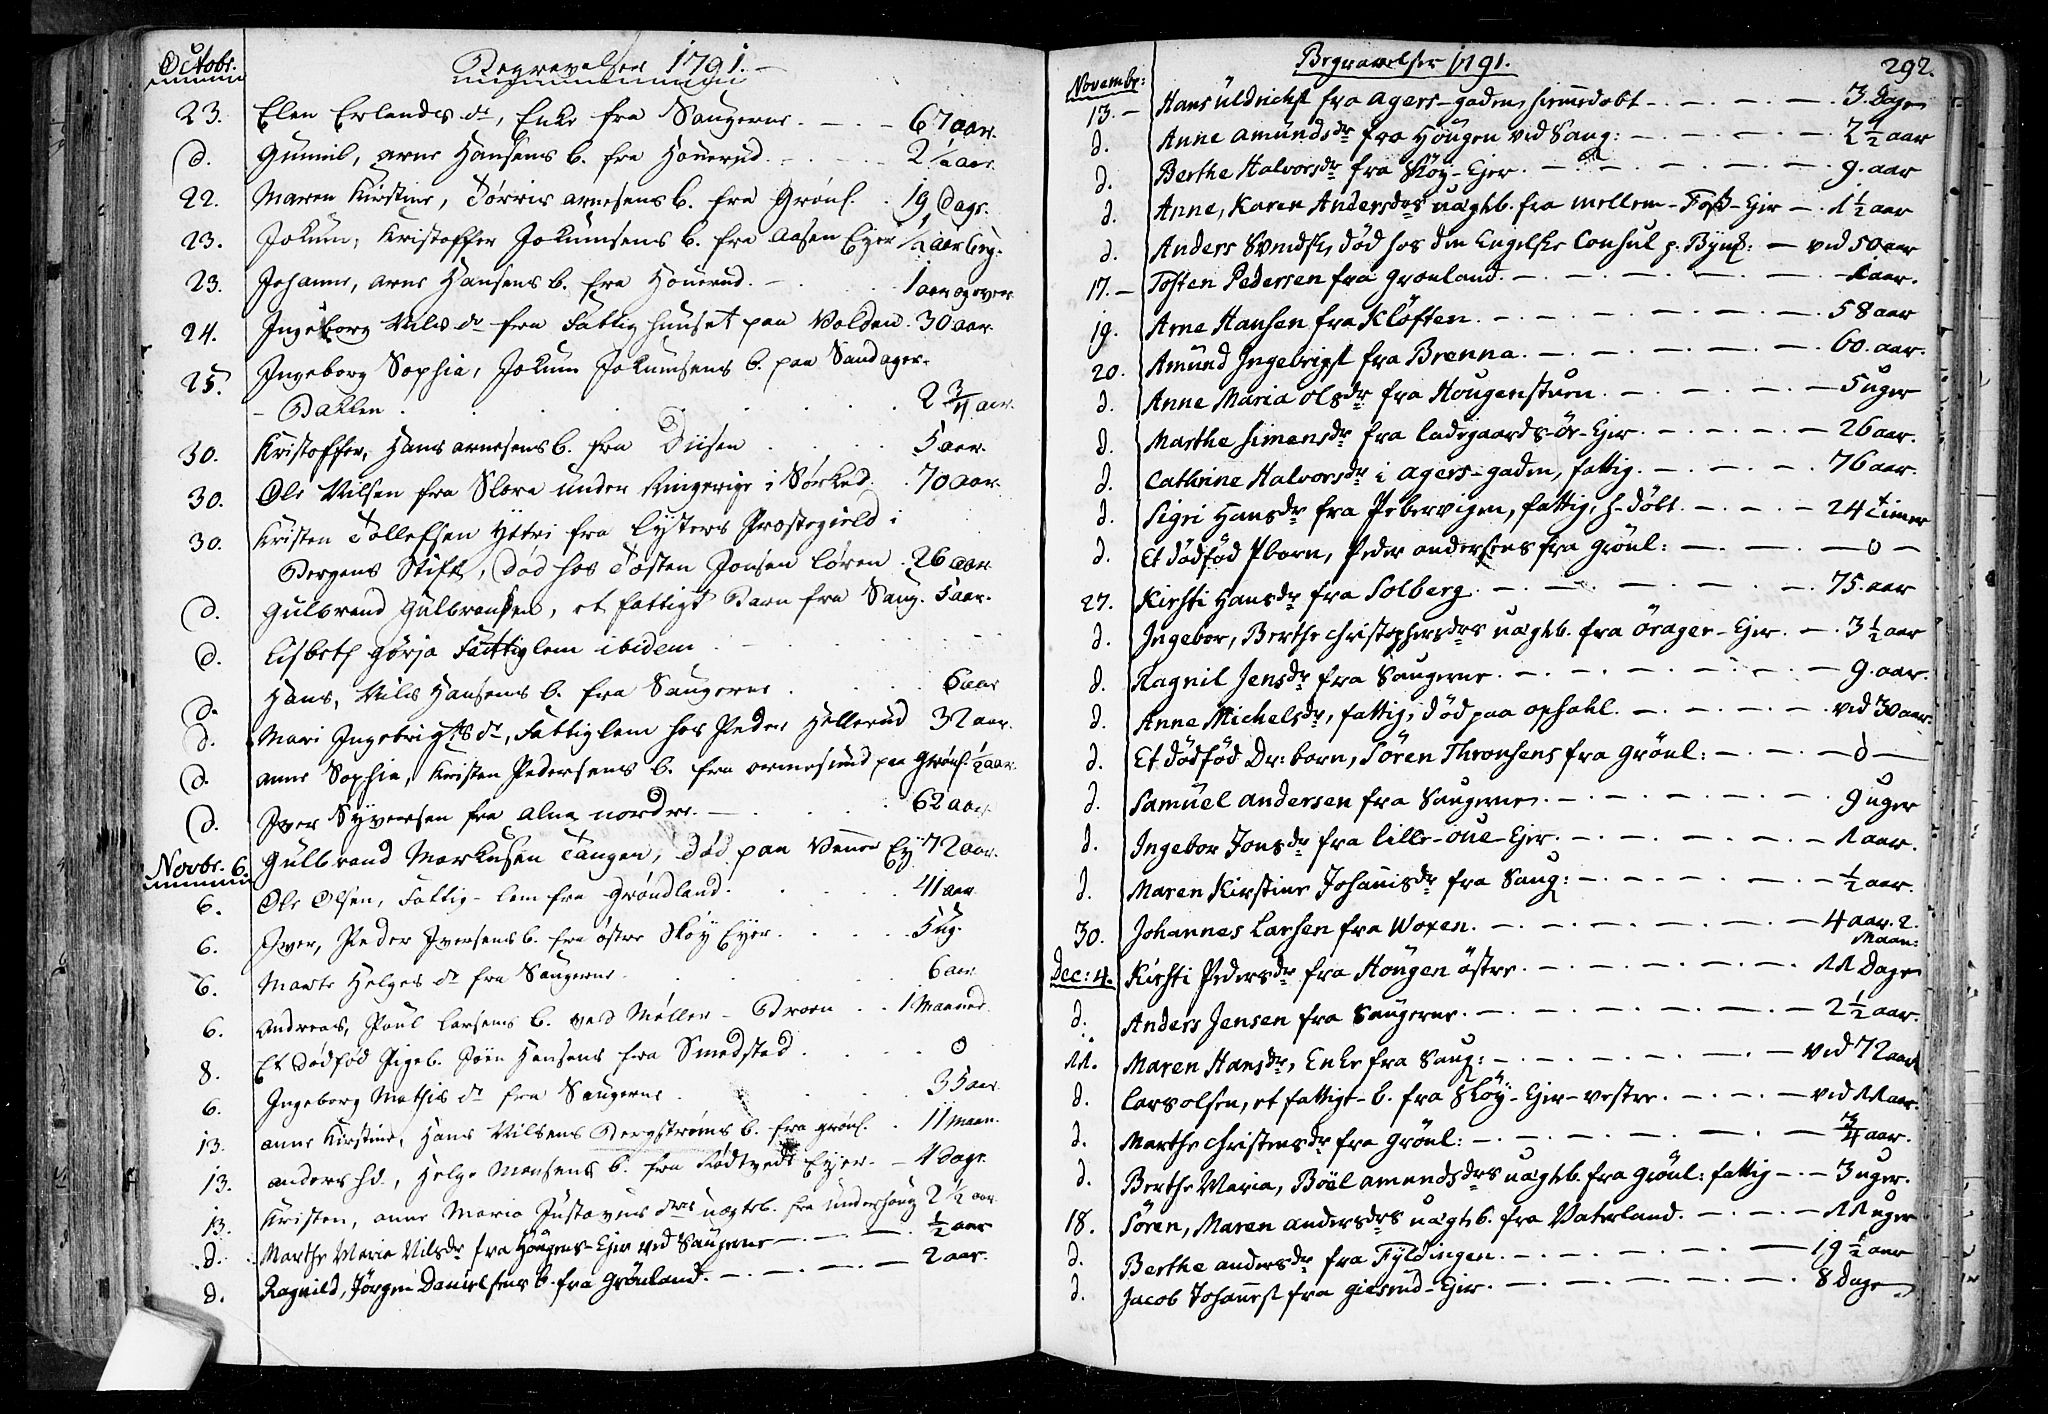 Octobr.
Begravelser 1791.
23. Elen Erlands dr, Enke fra Saugerne. 67 aar.
d. Gunnil, arne Hansens b. fra Houerud. 2 1/2 aar.
22. Maren Kirstine, Torris arnesens b. fra Grönl. 19 Dage.
23. Jokum, Kristoffer Jokumsens b. fra Aasen Eyer 1/2 aar
23. Johanne, arne Hansens b. fra Houerud. 1 aar og over
24. Ingeborg Nils dr fra Fattighuuset paa Volden. 30 aar.
25. Ingeborg Sophia, Jokum Jokumsens b. paa Sandager-
- Bakken 2 3/4 aar.
30. Kristoffer, Hans arnesens b. fra Diisen 5 aar.
30. Ole Nilsen fra Slora under Ringerige i Sørked. 70 aar.
30. Kristen Tollefsen Ytri fra Lysters Præstegield i
Bergens Stift, Død hos Tosten Jonsen Løren. 26 aar.
d. Gulbrand Gulbransen, et fattigt Barn fra Saug. 5 aar.
d. Lisbeth Gørja Fattiglem ibidem
d. Hans, Nils Hansens b. fra Saugerne 6 aar
d. Mari Ingebrigts dr, Fattiglem hos Peder Hellerud 32 aar.
d. anne Sophia, Kristen Pedersens b. fra ormesund paa Grönl. 1/2 aar.
d. Iver Syversen fra Alna nordre. 62 aar.
Novbr. 6. Gulbrand Markusen Tangen, død paa Ey. 72 aar.
6. Ole Olsen, Fattig-lem fra Grøndland. 41 aar
6. Iver, Peder Iversens b. fra østre Skøy Eyer. 5 ug.
6. Marte Helges dr fra Saugerne. 6 aar
6. Andreas, Poul Larsens b. ved Møller-Broen 1 Maaned.
8. Et dødfød Pigeb. Hansens fra Smedstad. 0
6. Ingeborg Mathis dr fra Saugerne 35 aar.
13. anne Kirstine, Hans Nilsens Bergstrøms b. fra grönl. 11 Maan.
13. anders hd., Helge Monsens b. fra Rødtvedt Eyer. 4 Dage.
13. Kristen, anne Maria Gustavus drs uægteb. fra underhaug 2 1/2 aar.
d. Marthe Maria Nilsdr fra Hougens-Ejer ved Saugerne 1/2 aar
d. Ragnild, Jörgen Danielsens b. fra Grönland. 2 aar.
Begravelser 1791.
292.
Novembr:
13. Hans Uldrichs: fra Agers-gaden, hiemedøbt 3. Dage
d. Anne Amundsdr fra Hougen ved Saug: 2 1/2 aar
d. Berthe Halvorsdr fra Skøy-Ejer. 9. aar
d. Anne, Karen Andersdrs uægtb. fra mellem-Foss-Ejer 1 1/2 aar
d. Anders Svendsk, død hos den Engelske Consul p. Bymk: ved 50 aar
17. Tosten Pedersen fra Grønland. 1 aar.
19. Arne Hansen fra Kløften. 58 aar
20. Amund Ingebrigs: fra Brenna. 60. aar.
d. Anne Maria Olsdr fra Hougenstuen. 5 uger
d. Marthe Simensdr fra Ladegaards-öe-Ejer. 26 aar.
d. Cathrine Halvorsdr i agers-gaden, fattig. 76 aar.
d. Sigri Hansdr fra Pebervigen, fattig, h-døbt. 24 timer
d. Et dödföd Pbarn, Peder andersens fra Grönl: 0
27. Kirsti Hansdr fra Solberg. 75. aar
d. Ingebor, Berthe Christophersdrs uægtb. fra örager-Ejer. 3 1/2 aar
d. Ragnil Jensdr fra Saugerne. 9. aar.
d. Anne Michelsdr, fattig, död paa Ophahl. ved 30 aar.
d. Et dödföd Dr: barn, Sören Thronsens fra Grönl: 0
d. Samuel andersen fra Saugerne. 9 uger
d. Ingebor Jonsdr fra lille-oue-Ejer. 1 aar.
d. Maren Kirstine Johannisdr fra Saug: 1/2 aar.
30. Johannes Larsen fra Woxen. 4 aar. 2.
Maan:
Dec: 4. Kirsti Pedersdr fra Hougen östre. 11 Dage
d. Anders Jensen fra Saugerne. 2 1/2 aar.
11. Maren Hansdr, Enke fra Saug: ved 72 aar
d. Lars olsen, et fattigt-b. fra Sköy-Ejer-vestre. ved 11 aar.
d. Marthe Christensdr fra Grönl: 3/4 aar.
d. Berthe Maria, Böel amundsdrs uægtb. fra Grönl: fattig 3 uger.
18. Sören, Maren andersdrs uægtb. fra Vaterland. 11 uger
d. Berthe andersdr fra Fyldingen. 19 1/2 aar
d. Jacob Johannes: fra -Ejer. 8 Dage